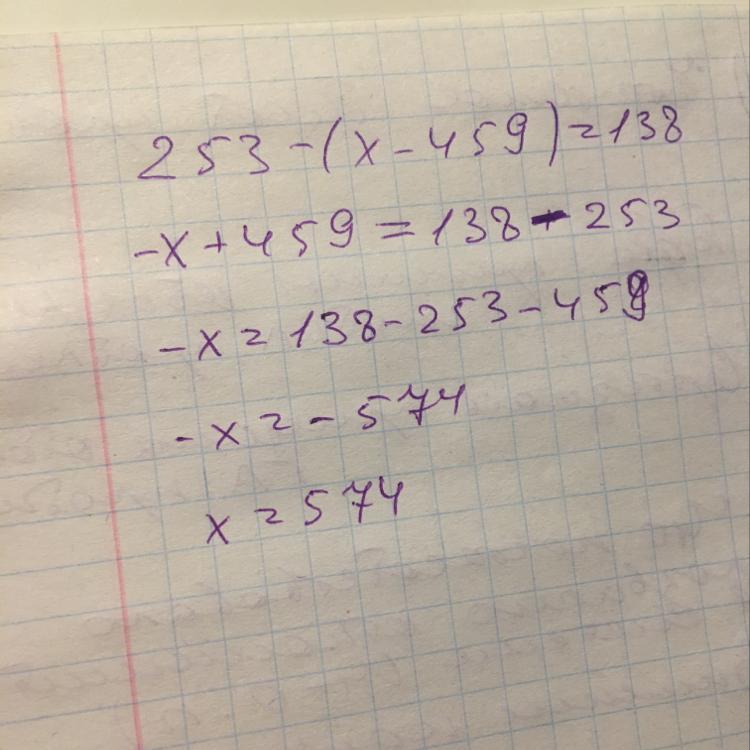 253 - (x - 459) = 138
-x + 459 = 138 - 253
-x = 138 - 253 - 459
-x = -574
x = 574